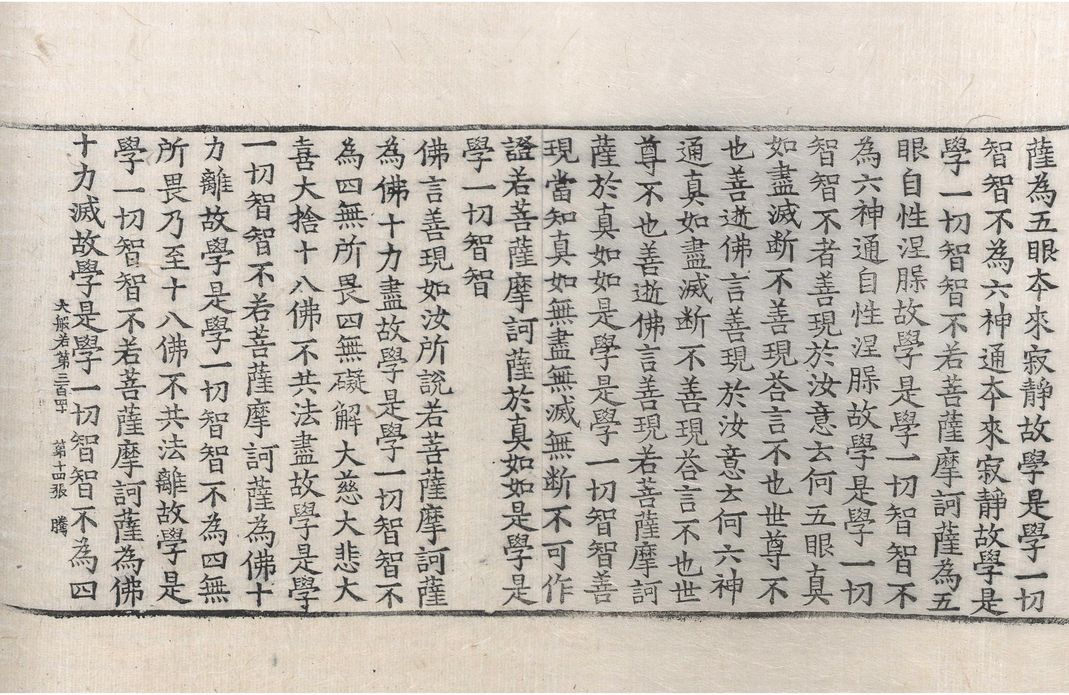 薩為五眼夲來寂靜故學是學一切
智智不為六神通夲來寂靜故學是
學一切智智不若菩薩摩訶薩為五
眼自性涅槃故學是學一切智智不
為六神通自性涅槃故學是學一切
智智不者善現於汝意云何五眼真
如盡滅断不善現荅言不也世尊不
也善逝佛言善現於汝意云何六神
通真如盡滅断不善現荅言不也世
尊不也善逝佛言善現若菩薩摩訶
薩於真如如是學是學一切智智善
現當知真如無盡無滅無断不可作
證若菩薩摩訶薩於真如如是學是
學一切智智
佛言善現如汝所說若菩薩摩訶薩
為佛十力盡故學是學一切智智不
為四無所畏四無礙解大慈大悲大
喜大捨十八佛不共法盡故學是學
一切智智不若菩薩摩訶薩為佛十
力離故學是學一切智智不為四無
所畏乃至十八佛不共法離故學是
學一切智智不若菩薩摩訶薩為佛
十力滅故學是學一切智智不為四
大般若第三百四十 第十四張 騰